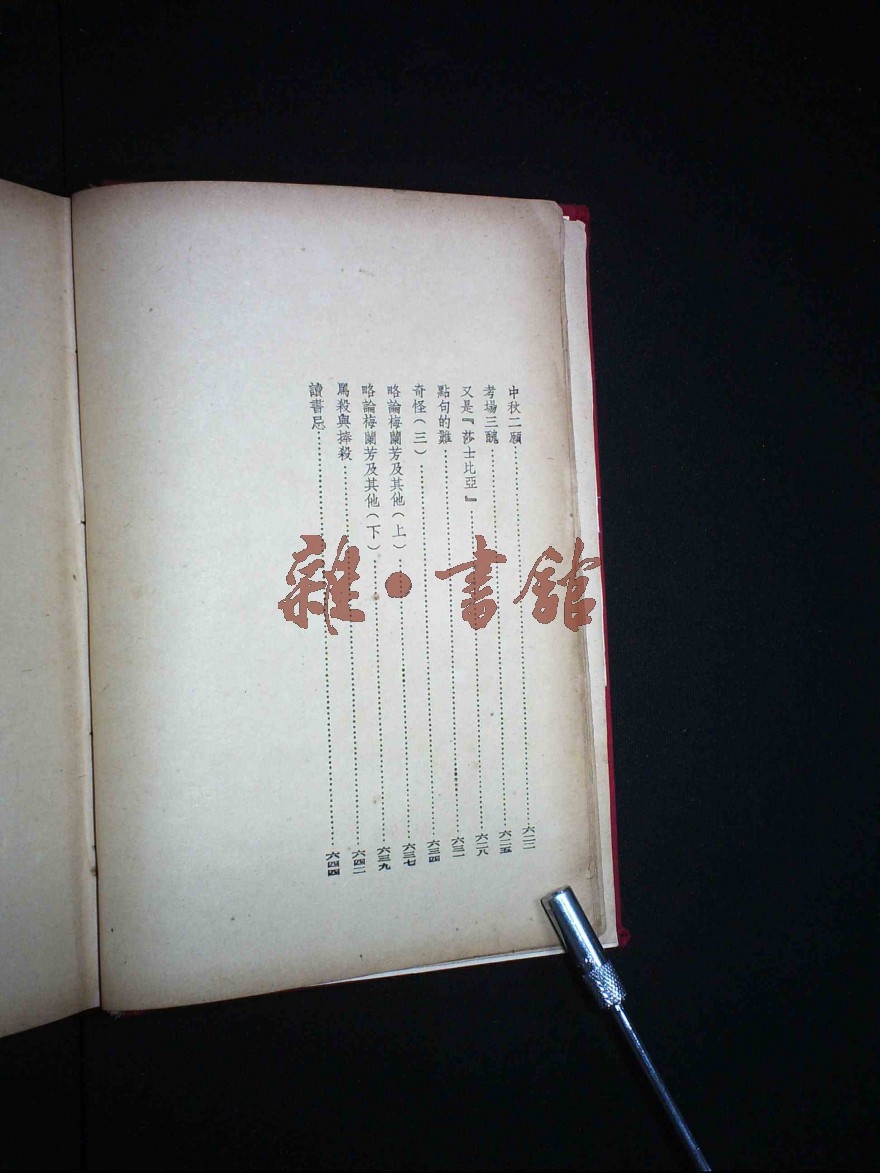 中秋二願……六二三
考場三醜……六二五
又是『莎士比亞』……六二八
點句的難……六三一
奇怪（三）……六三四
略論梅蘭芳及其他（上）……六三七
略論梅蘭芳及其他（下）……六三九
罵殺與捧殺……六四二
讀書忌……六四四
雜·書館